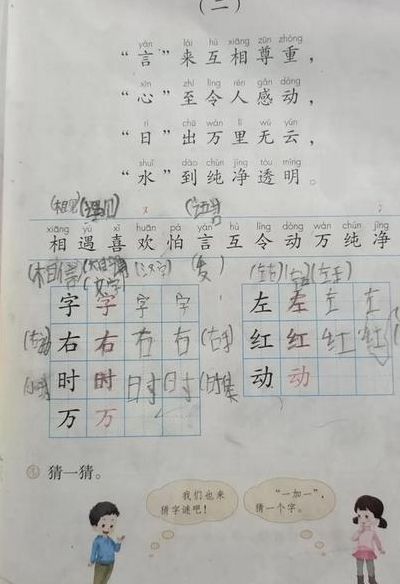 （二）
yán lái hù xiāng zūn zhòng
“言”来互相尊重，
xīn zhì lìng rén gǎn dòng
“心”至令人感动，
rì chū wàn lǐ wú yún
“日”出万里无云，
shuǐ dào chún jìng tòu míng
“水”到纯净透明。
xiāng yù xǐ huān pà yán hù lìng dòng wàn chún jìng
相遇喜欢怕言互令动万纯净
(相信) (文字)
字字字字 左左左左
右右右右 (右手) 红红红红
时时时时 动动
万万
猜一猜。
我们也来猜字谜吧！
“一加一”，猜一个字。